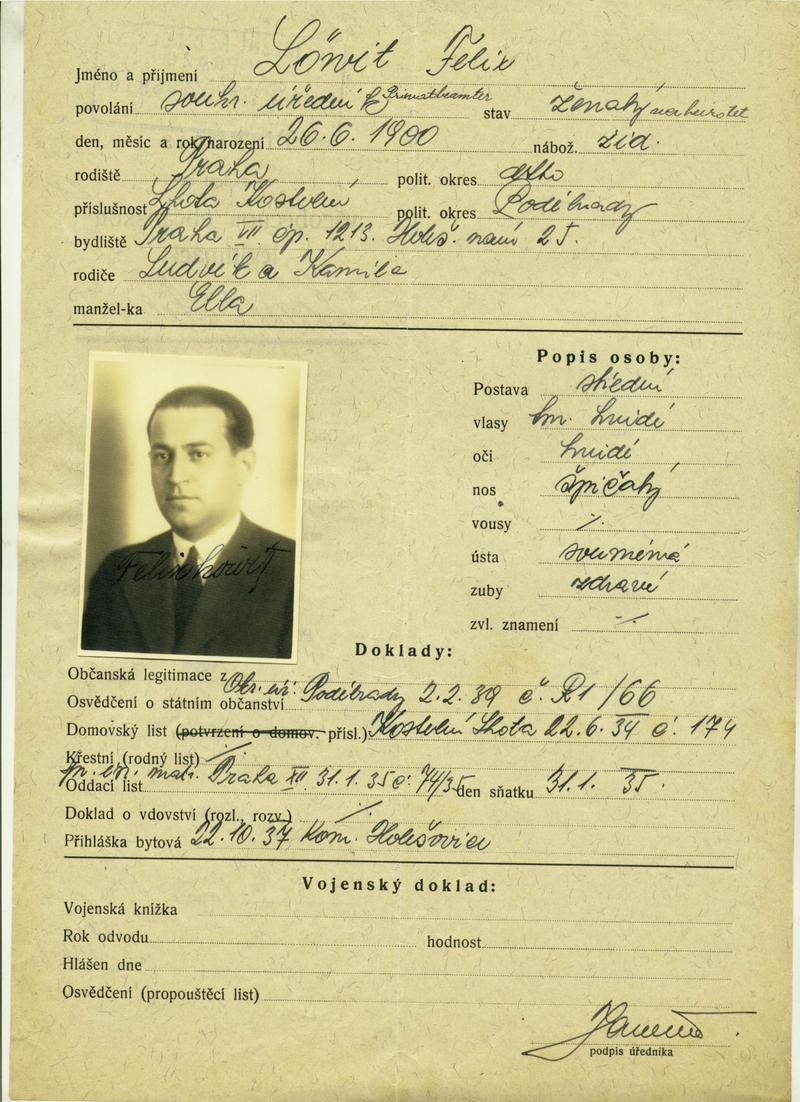 Jméno a přijmení Löwit Felix
povolání soukr. úředník Privatbeamter stav ženatý verheiratet
den, měsíc a rok narození 26.6.1900 nábož. žid.
rodiště Praha polit. okres dtto
příslušnost Lhota Kostelní polit. okres Poděbrady
bydliště Praha VII čp. 1213. Holeš. nám 25.
rodiče Ludvík a Kamila
manžel-ka Ella
Popis osoby:
Postava střední
vlasy tm. hnědé
oči hnědé
nos špičatý
vousy ./.
ústa souměrná
zuby zdravé
zvl. znamení ./.
Felix Löwit
Doklady:
Občanská legitimace z
Osvědčení o státním občanství Okr. úř. Poděbrady 2.2.39 č. R1/66
Domovský list (potvrzení o domov. přísl.) Kostelní Lhota 22.6.34 č. 174
Křestní (rodný list) ./.
Oddací list matr. Praha XII 31.1.35 č. 74/35 den sňatku 31.1. 35.
Doklad o vdovství (rozl., rozv.) ./.
Přihláška bytová 22.10.37 Kom. Holešovice
Vojenský doklad:
Vojenská knížka
Rok odvodu hodnost
Hlášen dne
Osvědčení (propouštěcí list)
podpis úředníka